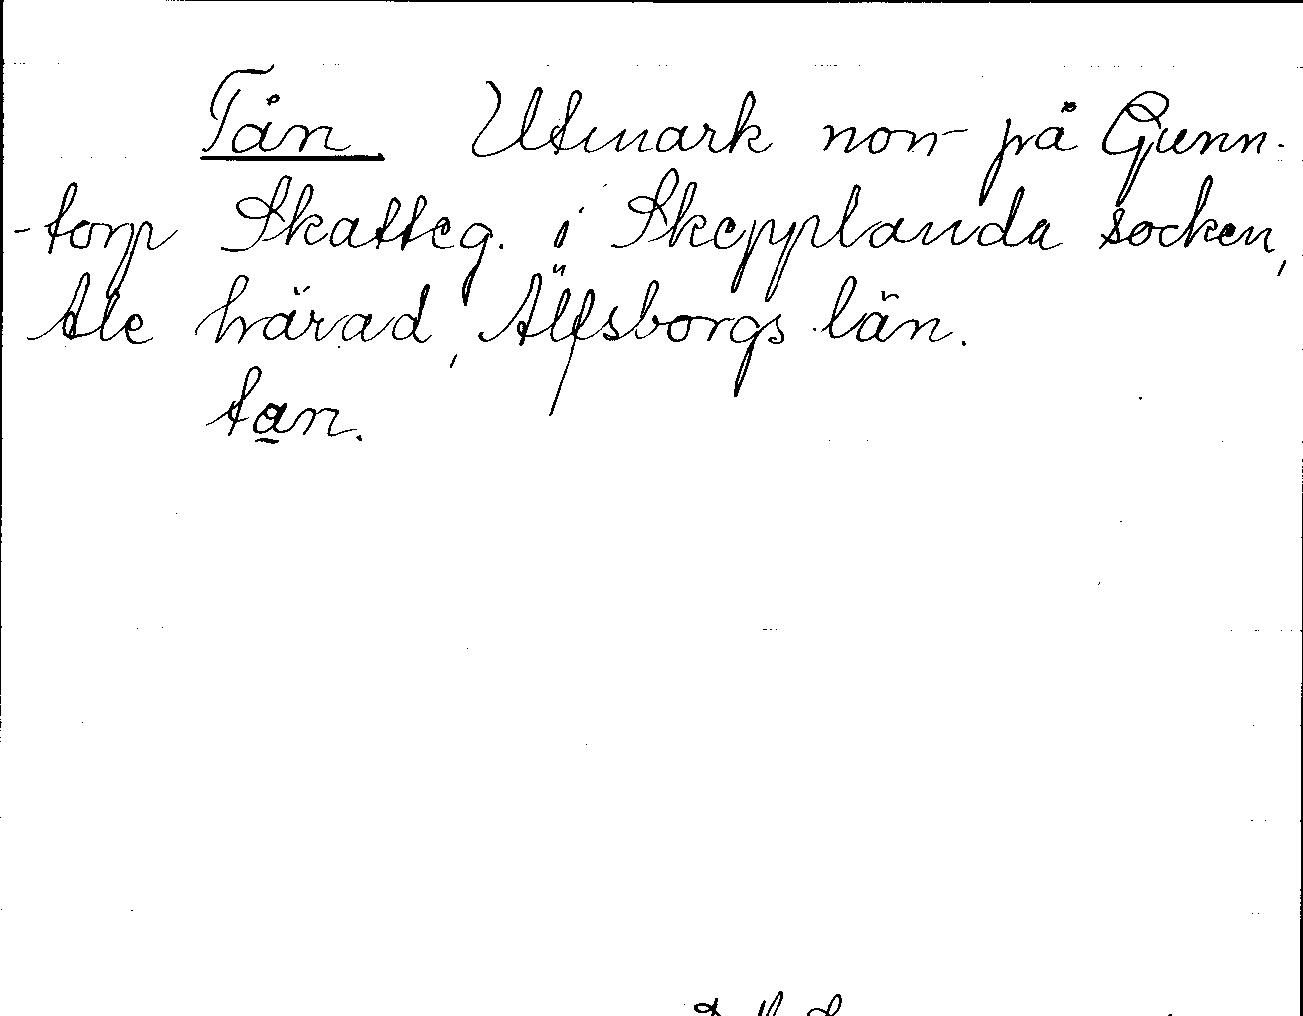 Tån. Utmark norr på Gunn-
-torp Skatteg. i Skepplanda socken,
Ale härad, Älfsborgs län.
tan.